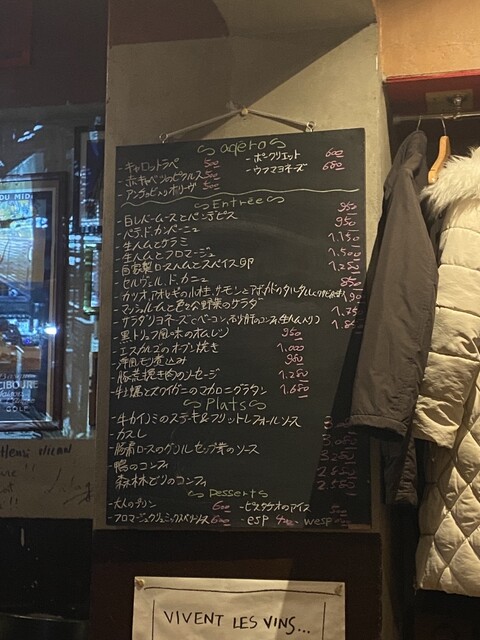 apéros
- キャロットラペ 500 - ポークリエット 600
- 赤キャベツのピクルス 500 - ウフマヨネーズ 680
- アンチョビ入りオリーヴ 500
Entrée
- 白レバームースとパンデピス 950
- パテ.ド.カンパーニュ 950
- 生ハムとサラミ 1.150
- 生ハムとフロマージュ 1.500
- 自家製ロースハムとスペイス卵 1.250
- セルヴェル.ド.カニュ 850
- カツオ、アオレギの小柱、サーモンとアボカドのタルタル
- マッシュルームと色々な野菜のサラダ
- サラダリヨネーズ(ベーコン、砂肝のコンフィ、生ハム入り)
- 黒トリュフ風味のオムレツ 950
- エスカルゴのオーブン焼き 1.000
- 洋風モツ煮込み 950
- 豚荒挽き肉のソーセージ 1.250
- 牡蠣とズワイガニのマカロニグラタン 1.650
Plats
- 牛カイノミのステーキ&フリット レフォールソース
- カスレ
- 豚肩ロースのグリル セップ茸のソース
- 鴨のコンフィ
- 森林どりのコンフィ
Desserts
- 大人のプリン 600 - ピスタチオのアイス
- フロマージュクリュ 600 - esp wesp
VIVENT LES VINS...
DU MIDI
CIBOURE